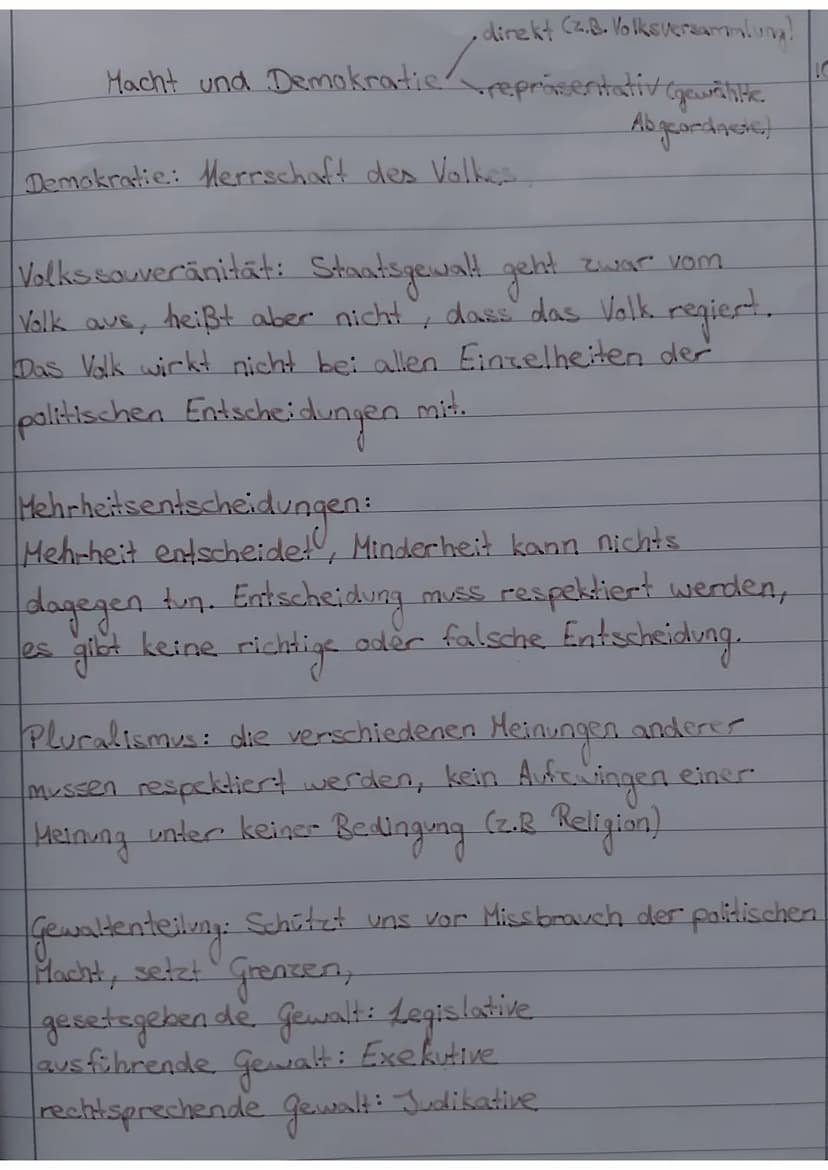 direkt (z.B. Volksversammlung)
Macht und Demokratie
repräsentativ (gewählte
Abgeordnete)
Demokratie: Herrschaft des Volkes
Volkssouveränität: Staatsgewalt geht zwar vom
Volk aus, heißt aber nicht, dass das Volk regiert.
Das Volk wirkt nicht bei allen Einzelheiten der
politischen Entscheidungen mit.
Mehrheitsentscheidungen:
Mehrheit entscheidet, Minderheit kann nichts
dagegen tun. Entscheidung muss respektiert werden,
es gibt keine richtige oder falsche Entscheidung.
Pluralismus: die verschiedenen Meinungen anderer
mussen respektiert werden, kein Aufzwingen einer
Meinung unter keiner Bedingung (z.B Religion)
Gewaltenteilung: Schützt uns vor Missbrauch der politischen
Macht, setzt Grenzen,
gesetzgebende Gewalt: Legislative
ausführende Gewalt: Exekutive
rechtsprechende Gewalt: Judikative